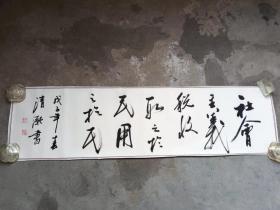 社會
主義
税收
取之於
民用
之於民
戊子年
清 書